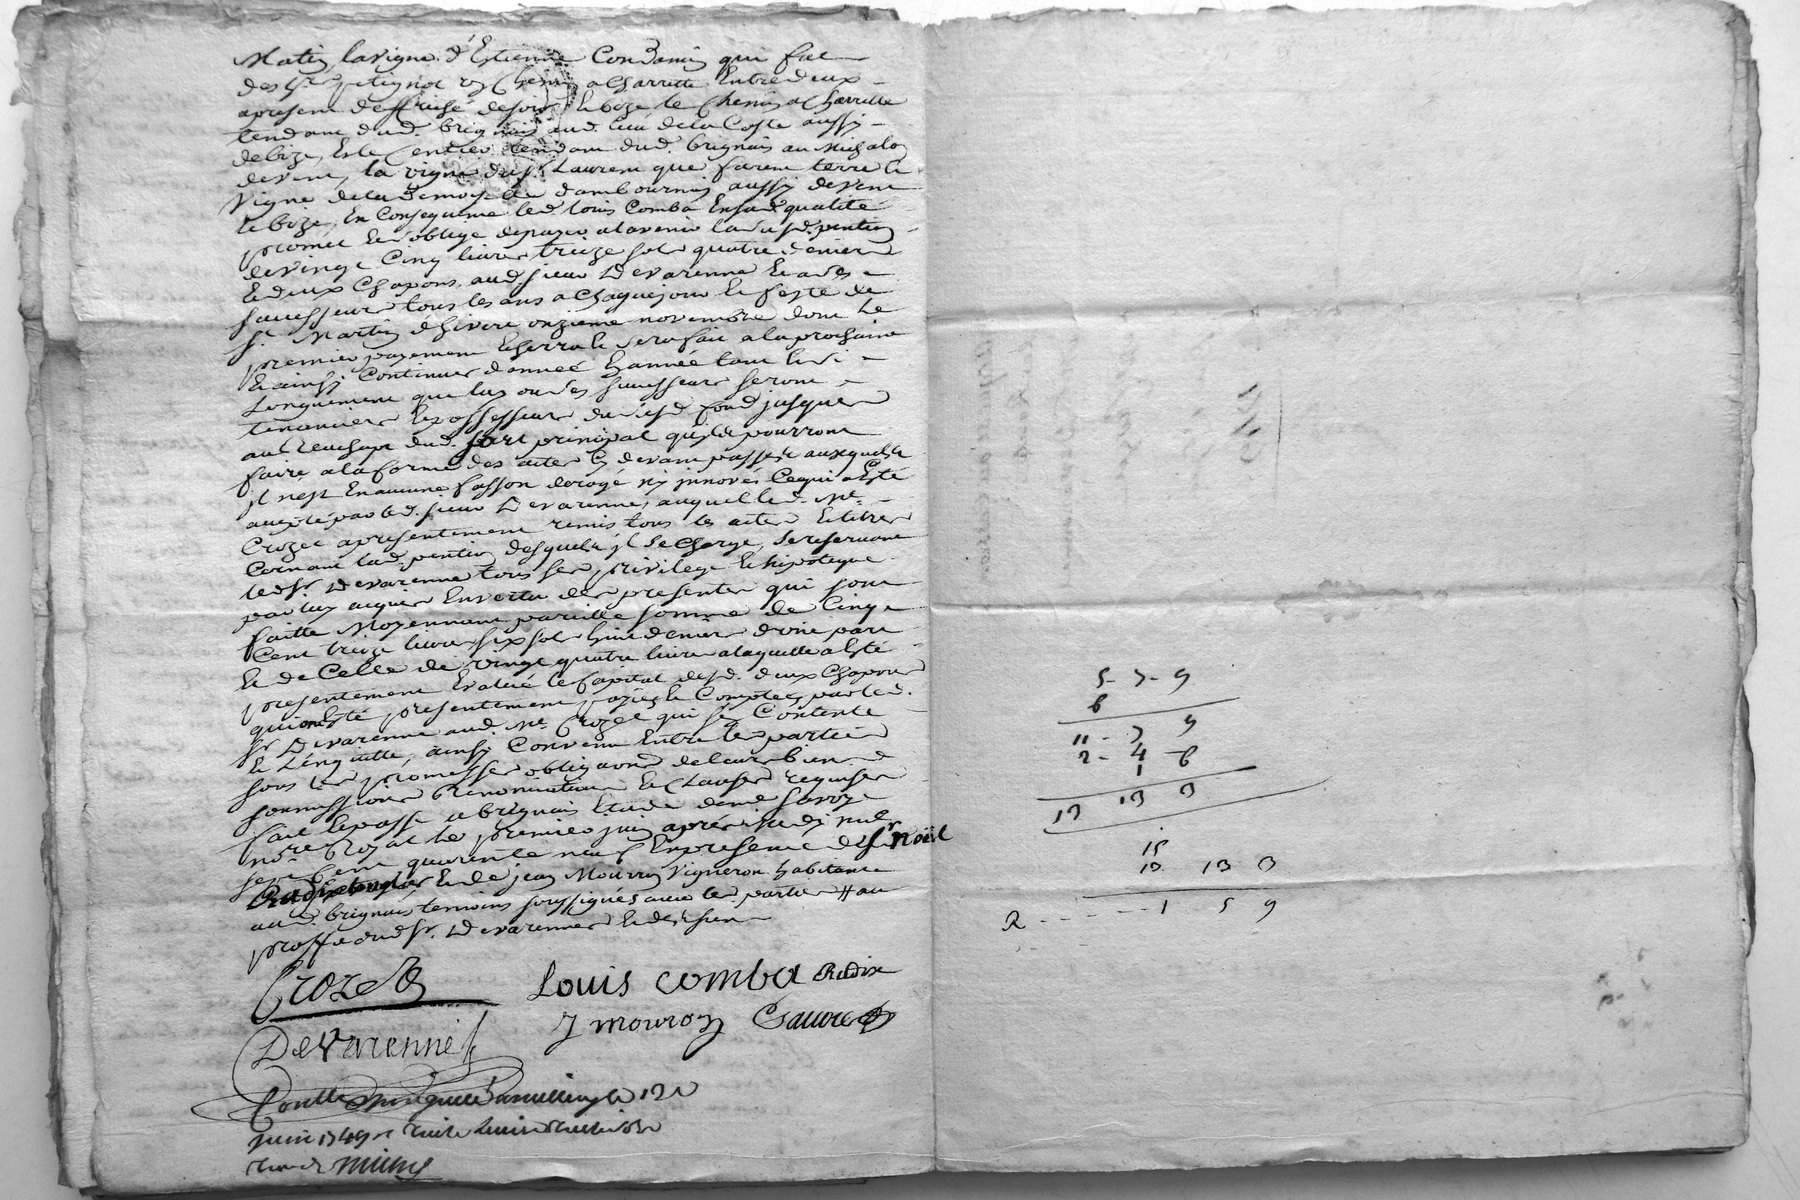 Matin, la vigne d'Etienne Condamin qui fut
des hrs petignot un Chemin a Charrette Entredeux
apresent deffriché de soir Et bize le Chemin a Charrette
tendant dud. brignais aud. lieu de la Coste aussy
de bize, Et le sentier tendant dud. brignais au Michalon
de vent, la vigne du Sr. Laurent que furent terre Et
Vigne de la Demoiselle dambournay aussy de vent
Et bize, En Consequence led. Louis Comba En sad. qualité
promet Et oblige de payer a lavenir lad. susd. pention
de vingt Cinq livres treize sols quatre deniers
Et deux Chapons, aud. sieur Devarenne Et a ses
successeurs tous les ans a Chaque jour Et feste de
St. Martin dhivert onzieme novembre dont le
premier payement Escherra Et sera fait a la prochaine
Et ainsy Continuer d'année En année tant Et si
Longuement que luy ou ses successeurs seront
tenanciers Et possesseurs du susd. fond jusques
au Reachapt dud. sort principal quils pourront
faire a la forme des actes cy devant passés auxquels
il n'est En aucune fasson derogé ny innové, Ce qui a Esté
accepté par led. sieur Devarenne, auquel led. Me.
Crozet a presentement remis tous les actes Et titres
Cernant lad. pention desquels il se Charge, se reservant
led. Sr. Devarenne tous ses privilege Et hipoteque
par luy acquis En vertu des presentes qui sont
faitte Moyennant pareille somme de Cinq
Cent treize livres six sols huit deniers d'une part
Et de Celle de vingt quatre livres a laquelle a Esté
presentement Evalué le Capital desd. deux Chapons
qui ont Esté presentement payées Et Comptées par led.
Sr. Devarenne aud. Me. Crozet qui s'en Contente
Et L'en quitte, ainsy Convenu Entre les parties
sous les promesses obligaōns de leurs biens
soumissions Renonciations Et Clauses requises
fait Et passé a brignais Etude de me Savoye
nore. Royal le premier juin après midy mil
sept Cent quarente neuf En presence de Sr. Noël
Radix Et de jean Mouron Vigneron habitants
aud. brignais temoins soussignés avec les parties # au
proffit dud. Sr. Devarennes Et des siens
Crozet
Louis comba Radix
J mouron Savoye
Devarenne
juin 1749
5 - 7 - 9
6
11 - 7 9
2 - 4 - 6
1
13 13 3
15
13 13 3
R - - - - - 1 5 9